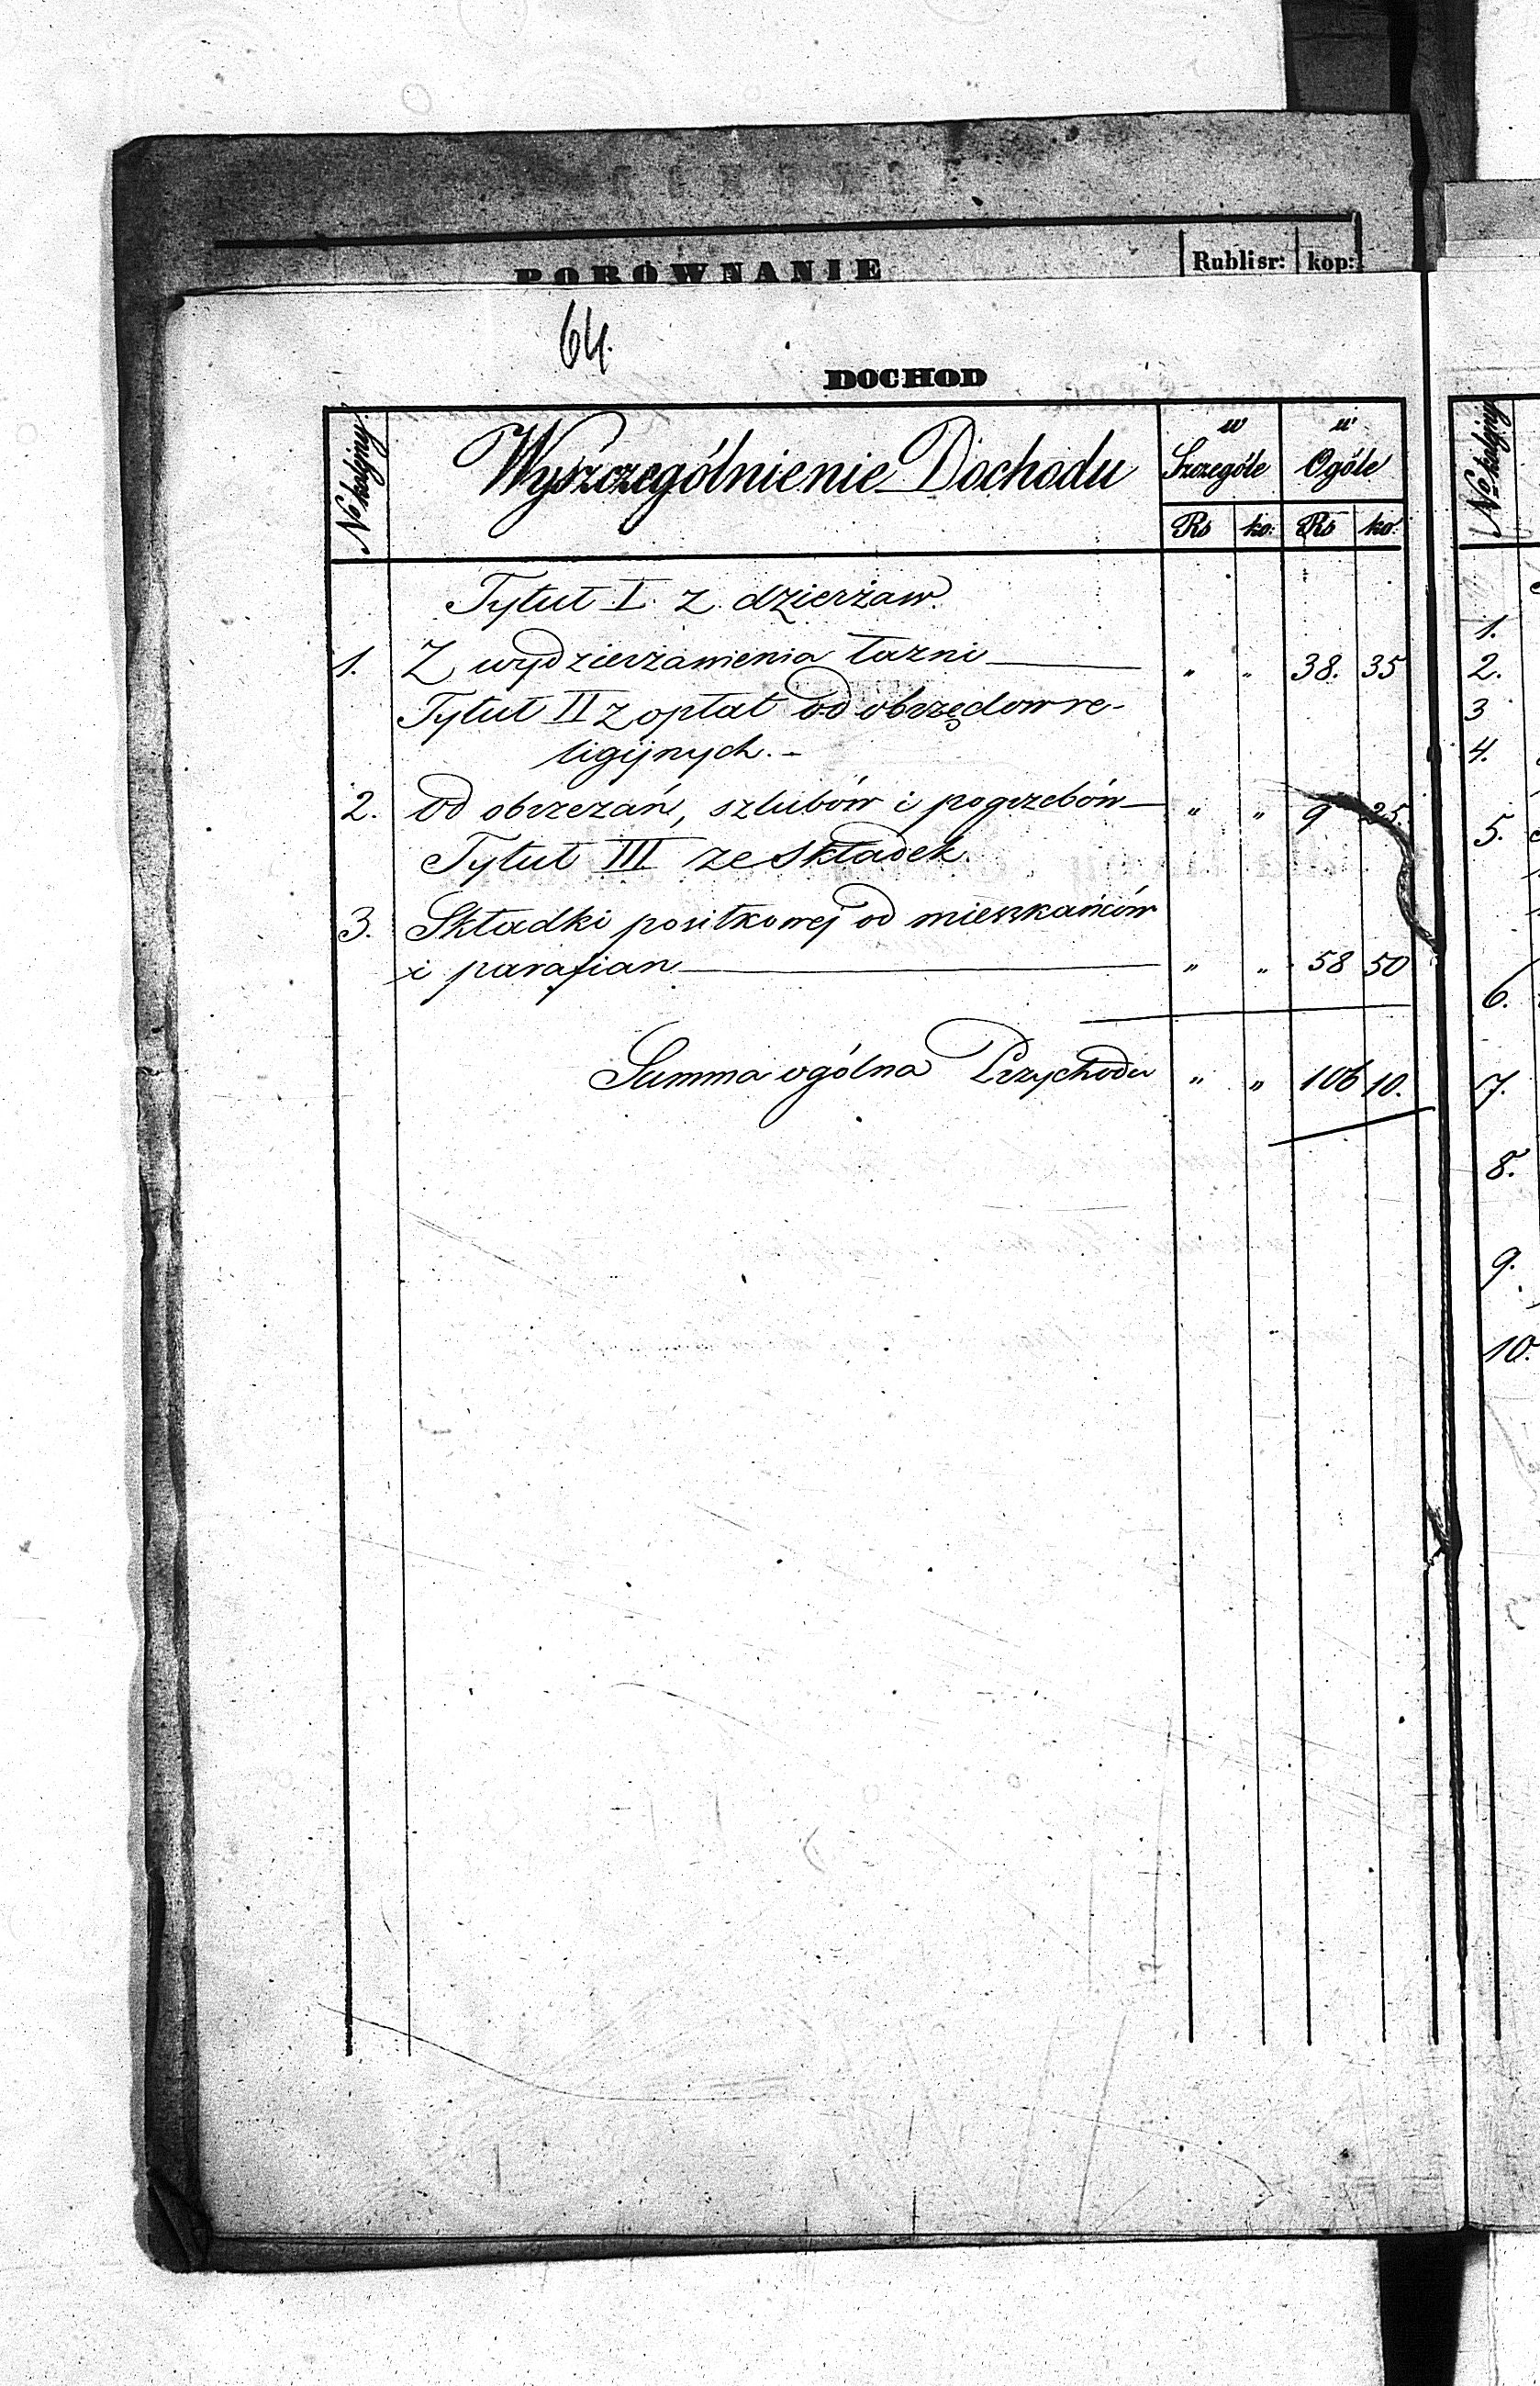 PORÓWNANIE Rubli sr: kop:
64.
DOCHOD
No kolejny Wyszczególnienie Dochodu w Szczególe w Ogóle
Rs ko: Rs ko:
Tytuł I. z dzierżaw.
1. Z wydzierżawienia łazni — " " 38. 35
Tytuł II z opłat od obrzędow re-
ligijnych. -
2. Od obrzezań, szlubów i pogrzebów — " " 9 25.
Tytuł III ze składek.
3. Składki positkowej od mieszkańców
i parafian — " " 58 50
Summa ogólna Przychodu " " 106 10.
No kolejny
1.
2.
3
4.
5.
6.
7.
8.
9.
10.